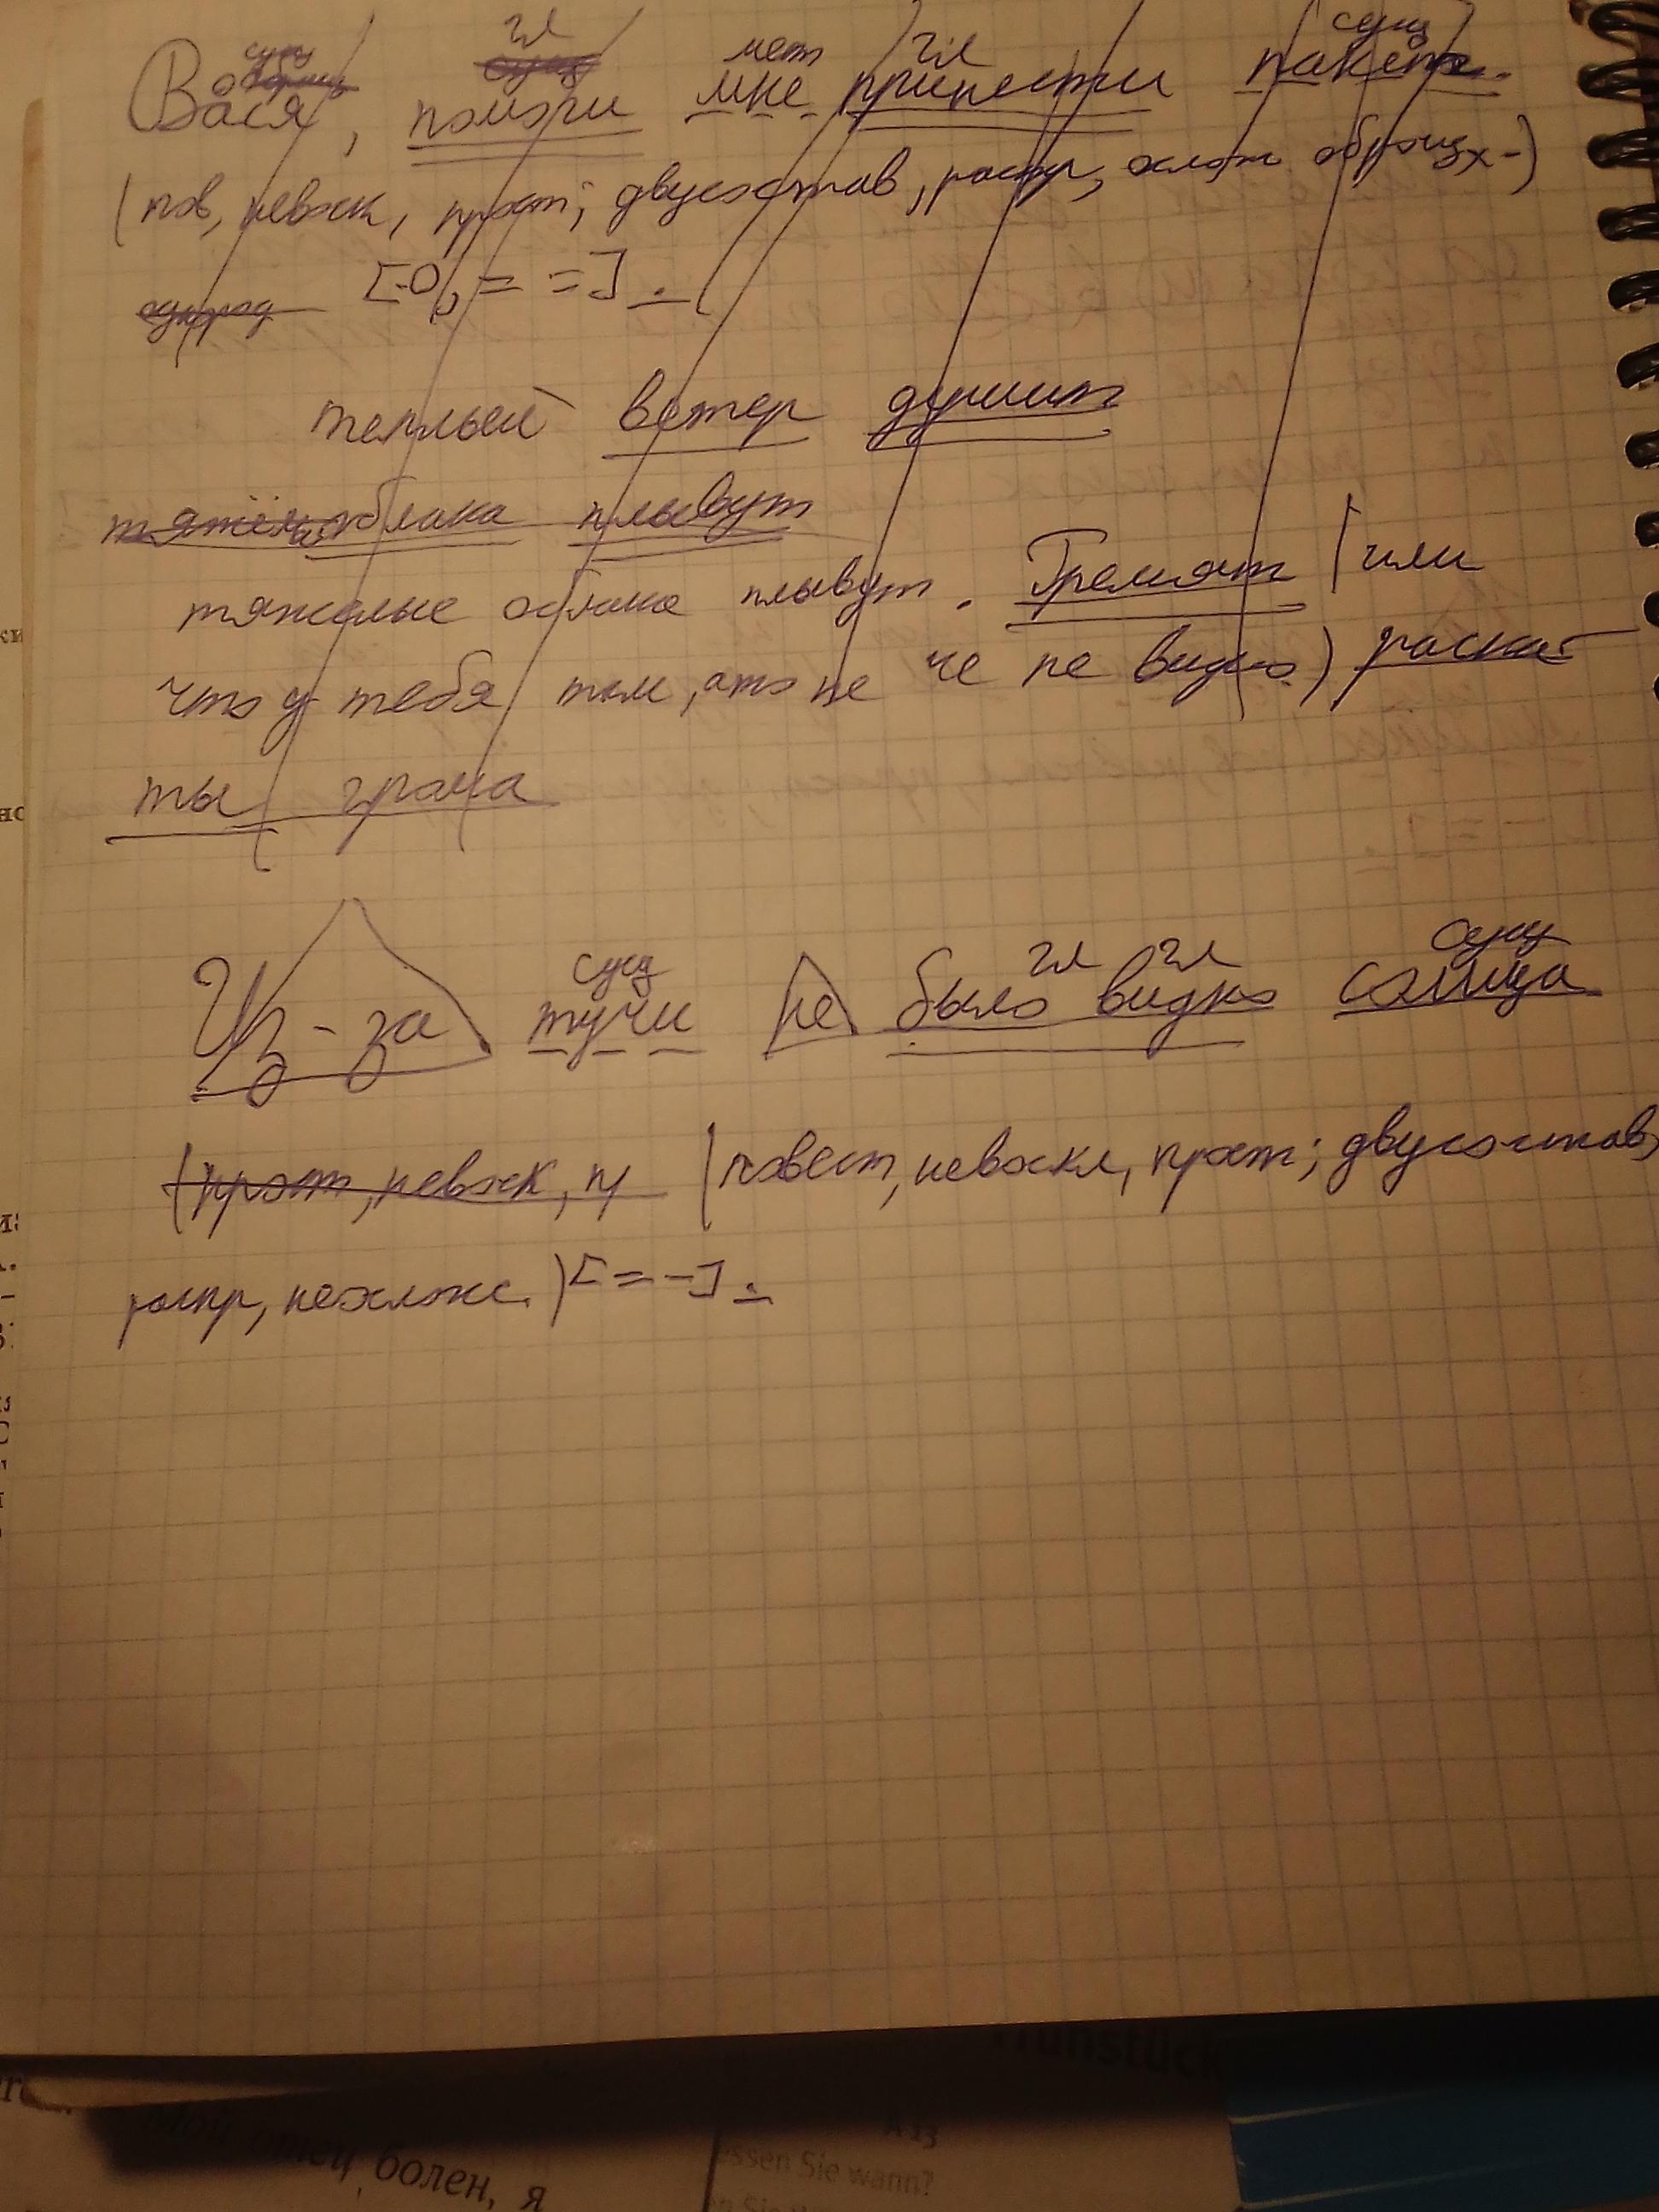 сущ гл мест гл сущ
Вася, помоги мне принести пакет.
(пов, невоск, прост; двусостав, распр, ослож обращ)
однород [О, = =].
теплый ветер душит
облака плывут
тяжелые облака плывут. Гремят (или
что у тебя там, а то не че не видно) раска-
ты грома
сущ гл гл сущ
Из-за тучи не было видно солнца
(прост, невоск, п (повест, невоскл, прост; двусостав,
распр, неослож.) [= -].
Мой отец болен, я
essen Sie wann?